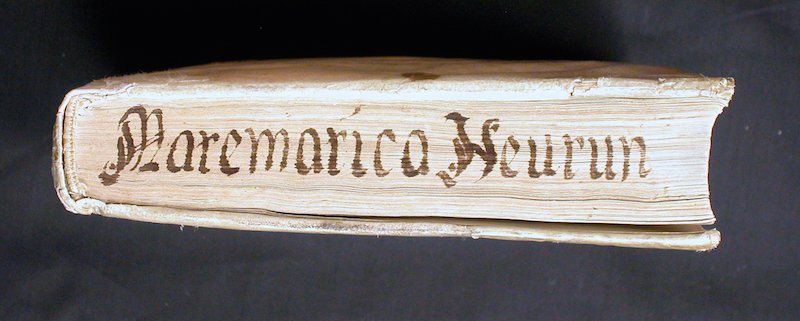 Matematica Neutun